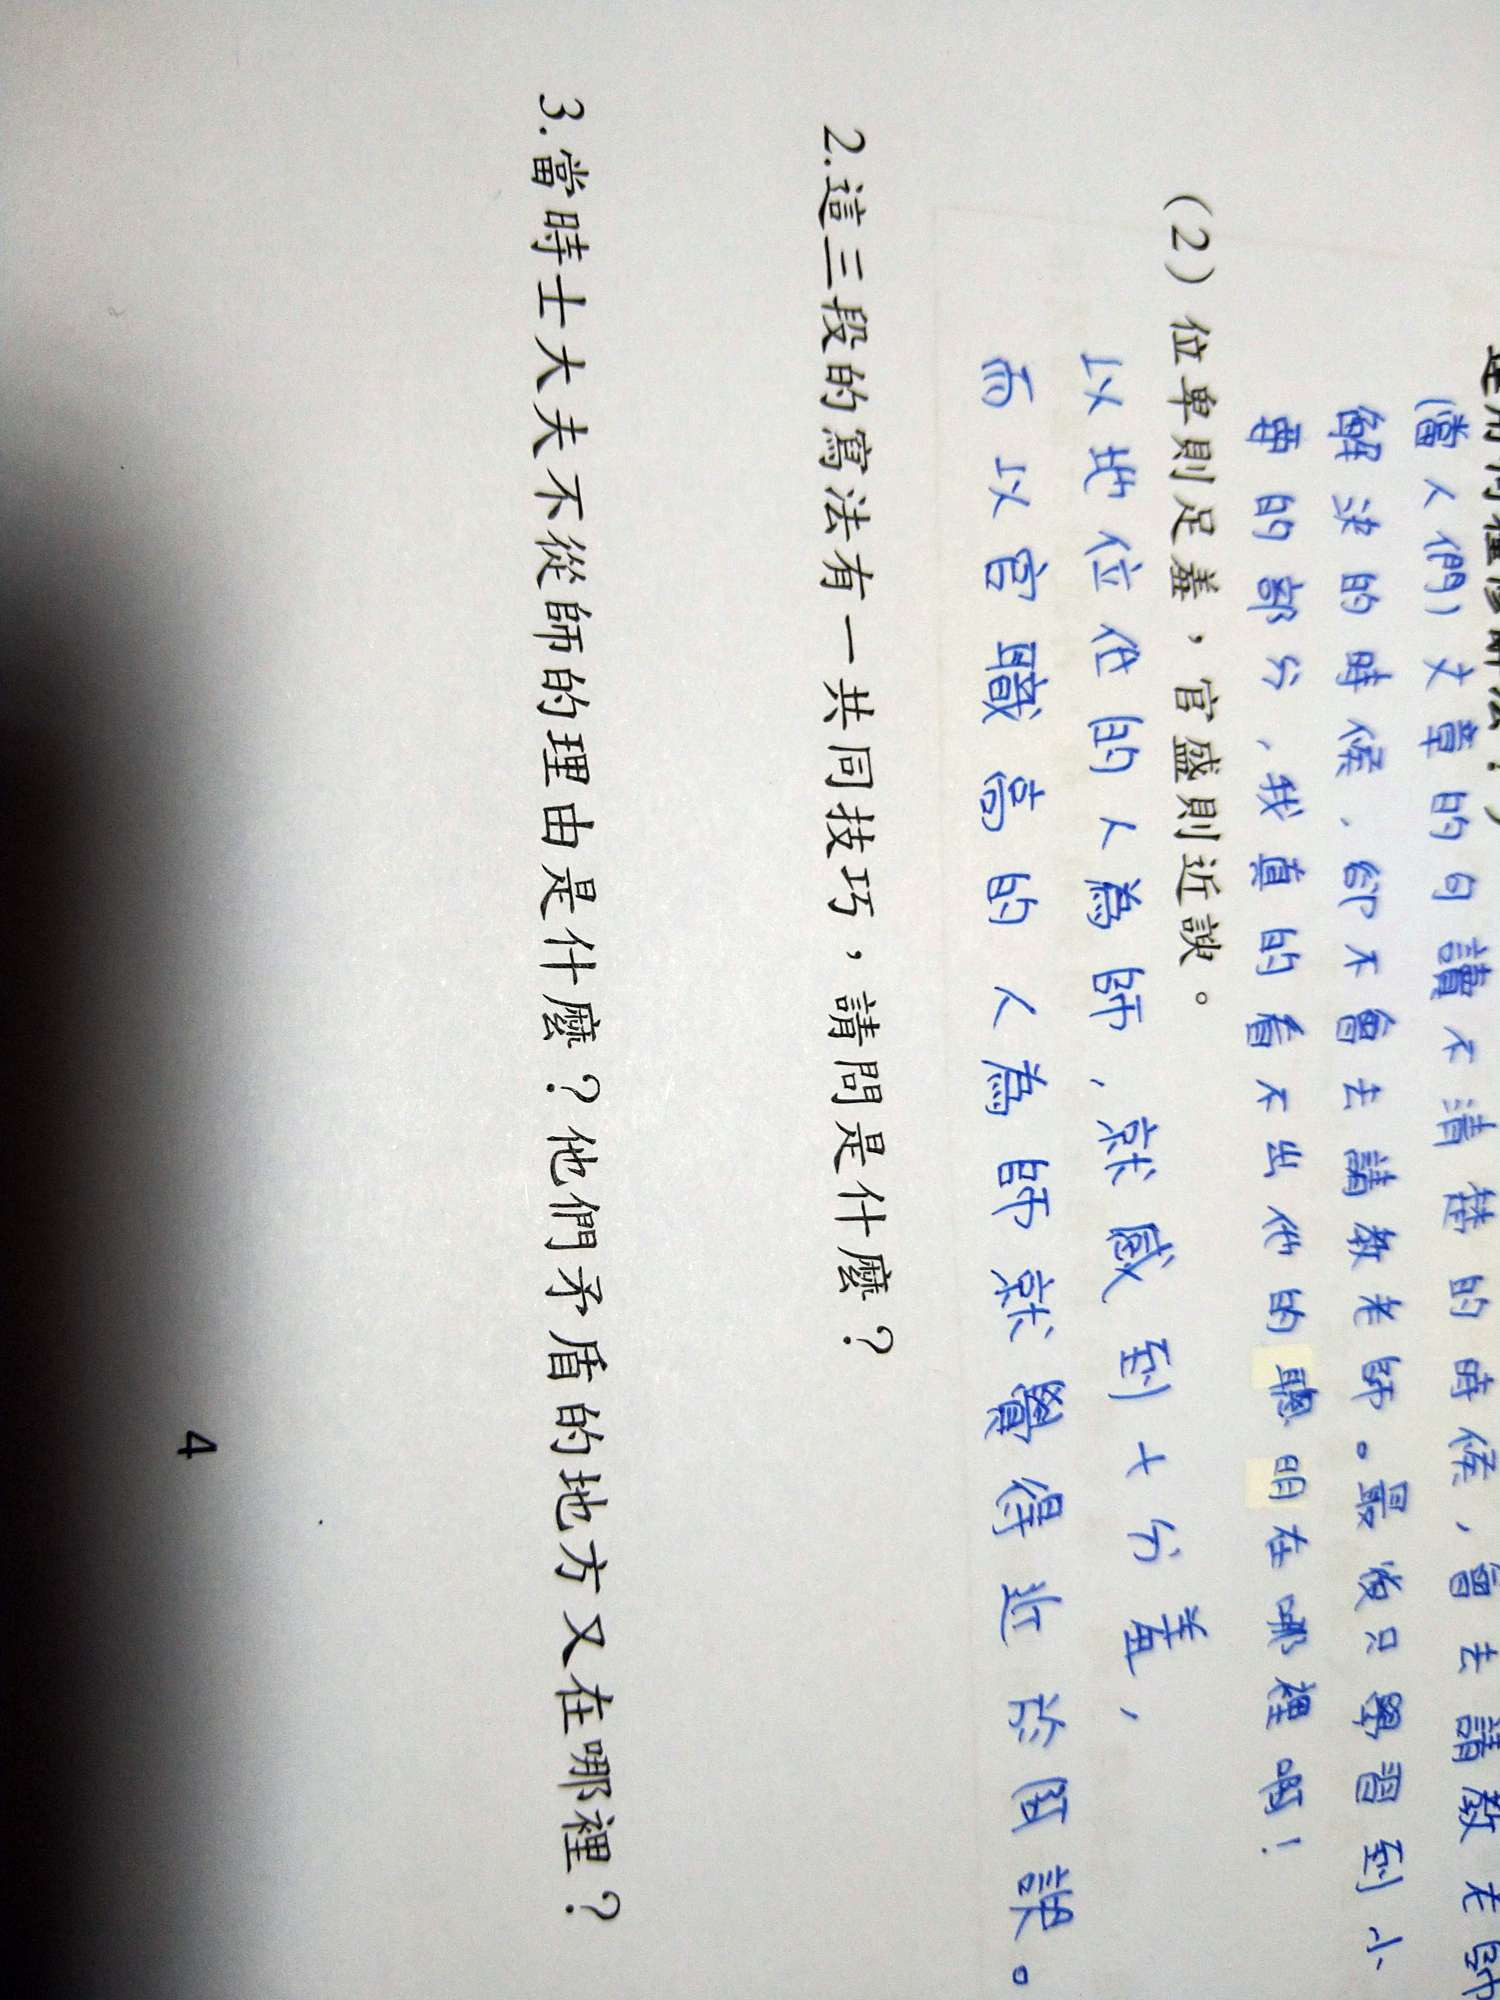 運用何種修辭法？）
（當人們）文章的句讀不清楚的時候，會去請教老師
解決的時候，卻不會去請教老師。最後只學習到小
要的部分，我真的看不出他的聰明在哪裡啊！
（2）位卑則足羞，官盛則近諛。
以地位低的人為師，就感到十分羞，
而以官職高的人為師就覺得近於阿諛。
2.這三段的寫法有一共同技巧，請問是什麼？
3.當時士大夫不從師的理由是什麼？他們矛盾的地方又在哪裡？
4